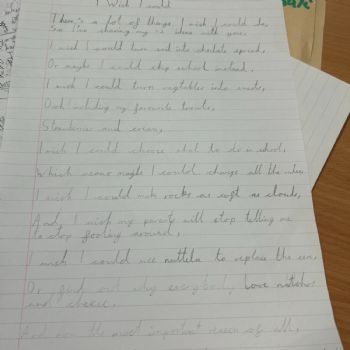 I Wish I could
There's a lot of things I wish I could do,
So I'm sharing my ideas with you.
I wish I could turn into chocolate spread,
Or maybe I could skip school instead.
I wish I could turn vegtables into sweets,
And including my favourite treats,
Strawberries and cream,
I wish I could choose what to do in school,
Which means maybe I could change all the rules.
I wish I could make rocks as soft as clouds,
And I wish my parents will stop telling me
to stop fooling around,
I wish I could use nuttela to replace the
Or find out why everybody love
and cheese,
And now the most important reason of all,